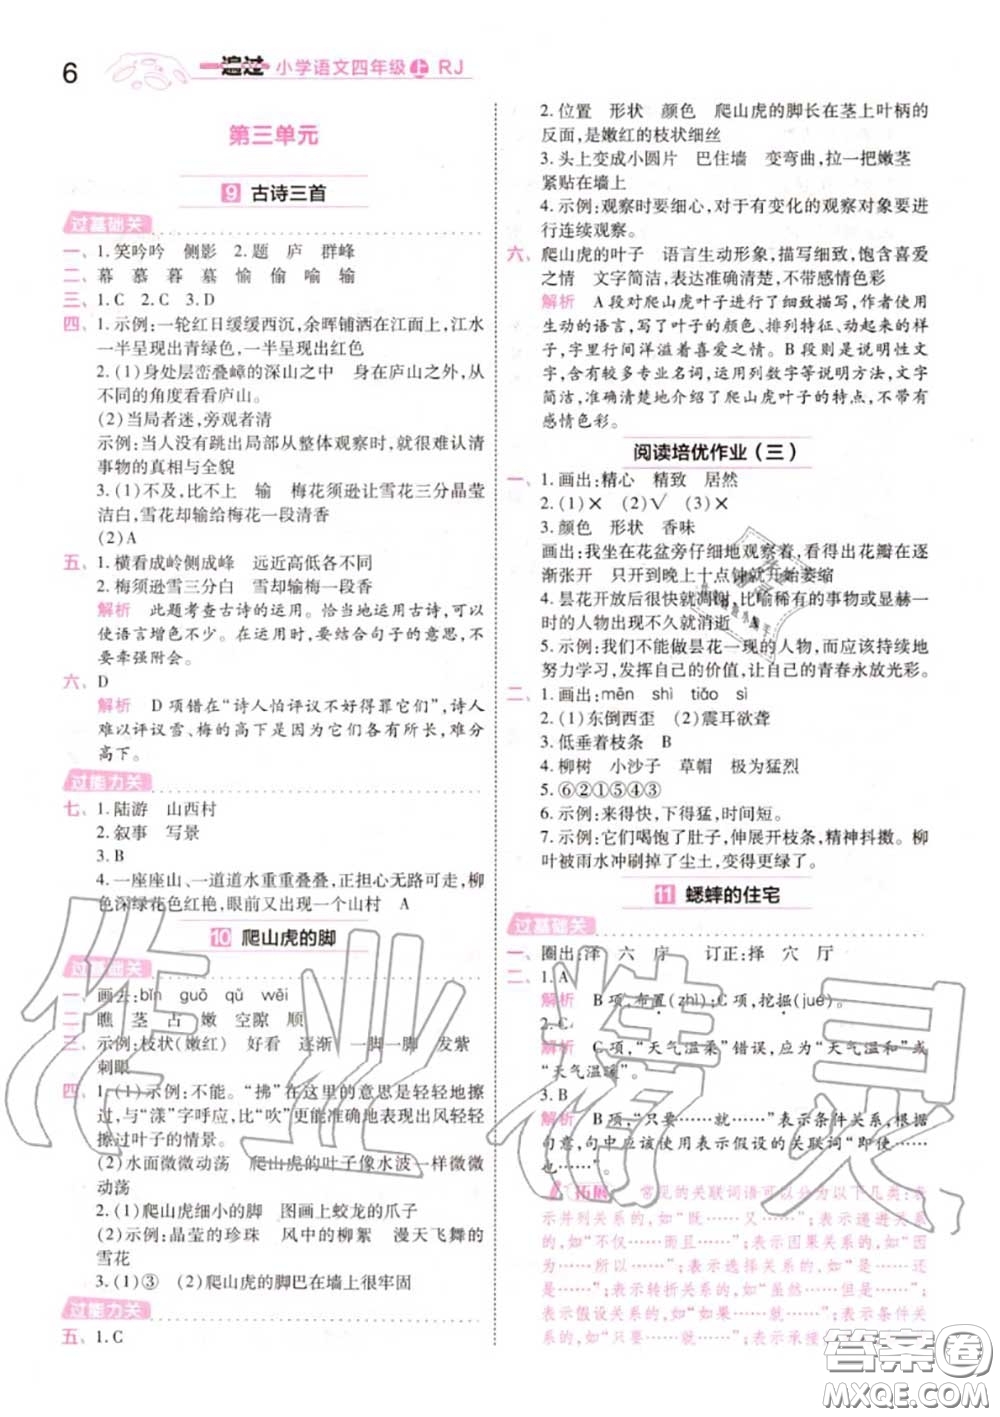 6
一遍过 小学语文四年级 上 RJ
第三单元
9 古诗三首
过基础关
一、1.笑吟吟 侧影 2.题 庐 群峰
二、幕 慕 暮 墓 愉 偷 喻 输
三、1.C 2.C 3.D
四、1.示例:一轮红日缓缓西沉,余晖铺洒在江面上,江水
一半呈现出青绿色,一半呈现出红色
2.(1)身处层峦叠嶂的深山之中 身在庐山之中,从
不同的角度看看庐山。
(2)当局者迷,旁观者清
示例:当人没有跳出局部从整体观察时,就很难认清
事物的真相与全貌
3.(1)不及,比不上 输 梅花须逊让雪花三分晶莹
洁白,雪花却输给梅花一段清香
(2)A
五、1.横看成岭侧成峰 远近高低各不同
2.梅须逊雪三分白 雪却输梅一段香
解析 此题考查古诗的运用。恰当地运用古诗,可以
使语言增色不少。在运用时,要结合句子的意思,不
要牵强附会。
六、D
解析 D项错在“诗人怕评议不好得罪它们”,诗人
难以评议雪、梅的高下是因为它们各有所长,难分
高下。
过能力关
七、1.陆游 山西村
2.叙事 写景
3.B
4.一座座山、一道道水重重叠叠,正担心无路可走,柳
色深绿花色红艳,眼前又出现一个山村 A
10 爬山虎的脚
过基础关
一、画去:bǐn guō qǔ wěi
二、瞧 茎 占 嫩 空隙 顺
三、示例:枝状(嫩红) 好看 逐渐 一脚一脚 发紫
刺眼
四、1.(1)示例:不能。“拂”在这里的意思是轻轻地擦
过,与“漾”字呼应,比“吹”更能准确地表现出风轻轻
擦过叶子的情景。
(2)水面微微动荡 爬山虎的叶子像水波一样微微
动荡
2.(1)爬山虎细小的脚 图画上蛟龙的爪子
(2)示例:晶莹的珍珠 风中的柳絮 漫天飞舞的
雪花
3.(1)③ (2)爬山虎的脚巴在墙上很牢固
过能力关
五、1.C
2.位置 形状 颜色 爬山虎的脚长在茎上叶柄的
反面,是嫩红的枝状细丝
3.头上变成小圆片 巴住墙 变弯曲,拉一把嫩茎
紧贴在墙上
4.示例:观察时要细心,对于有变化的观察对象要进
行连续观察。
六、爬山虎的叶子 语言生动形象,描写细致,饱含喜爱
之情 文字简洁,表达准确清楚,不带感情色彩
解析 A段对爬山虎叶子进行了细致描写,作者使用
生动的语言,写了叶子的颜色、排列特征、动起来的样
子,字里行间洋溢着喜爱之情。B段则是说明性文
字,含有较多专业名词,运用列数字等说明方法,文字
简洁,准确清楚地介绍了爬山虎叶子的特点,不带有
感情色彩。
阅读培优作业(三)
一、1.画出:精心 精致 居然
2.(1)× (2)√ (3)×
3.颜色 形状 香味
画出:我坐在花盆旁仔细地观察着,看得出花瓣在逐
渐张开 只开到晚上十点钟就开始萎缩
4.昙花开放后很快就凋谢,比喻稀有的事物或显赫一
时的人物出现不久就消逝
5.示例:我们不能做昙花一现的人物,而应该持续地
努力学习,发挥自己的价值,让自己的青春永放光彩。
二、1.画出:mēn shì tiāo sì
2.(1)东倒西歪 (2)震耳欲聋
3.低垂着枝条 B
4.柳树 小沙子 草帽 极为猛烈
5.⑥②①⑤④③
6.示例:来得快,下得猛,时间短。
7.示例:它们喝饱了肚子,伸展开枝条,精神抖擞。柳
叶被雨水冲刷掉了尘土,变得更绿了。
11 蟋蟀的住宅
过基础关
一、圈出:泽 六 庌 订正:择 穴 厅
二、1.A
解析 B项,布置(zhì);C项,挖掘(jué)。
2.C
解析 C项,“天气温柔”错误,应为“天气温和”或
“天气温暖”。
3.B
解析 B项,“只要……就……”表示条件关系,根据
句意,句中应该使用表示假设的关联词“即使……
也……”。
拓展 常见的关联词语可以分为以下几类:表
示并列关系的,如“既……又……”;表示递进关系
的,如“不仅……而且……”;表示因果关系的,如“因
为……所以……”;表示选择关系的,如“是……还
是……”;表示转折关系的,如“虽然……但是……”;
表示假设关系的,如“如果……就……”;表示条件关
系的,如“只要……就……”;表示承接
作业精灵
答案圈
MXQE.COM